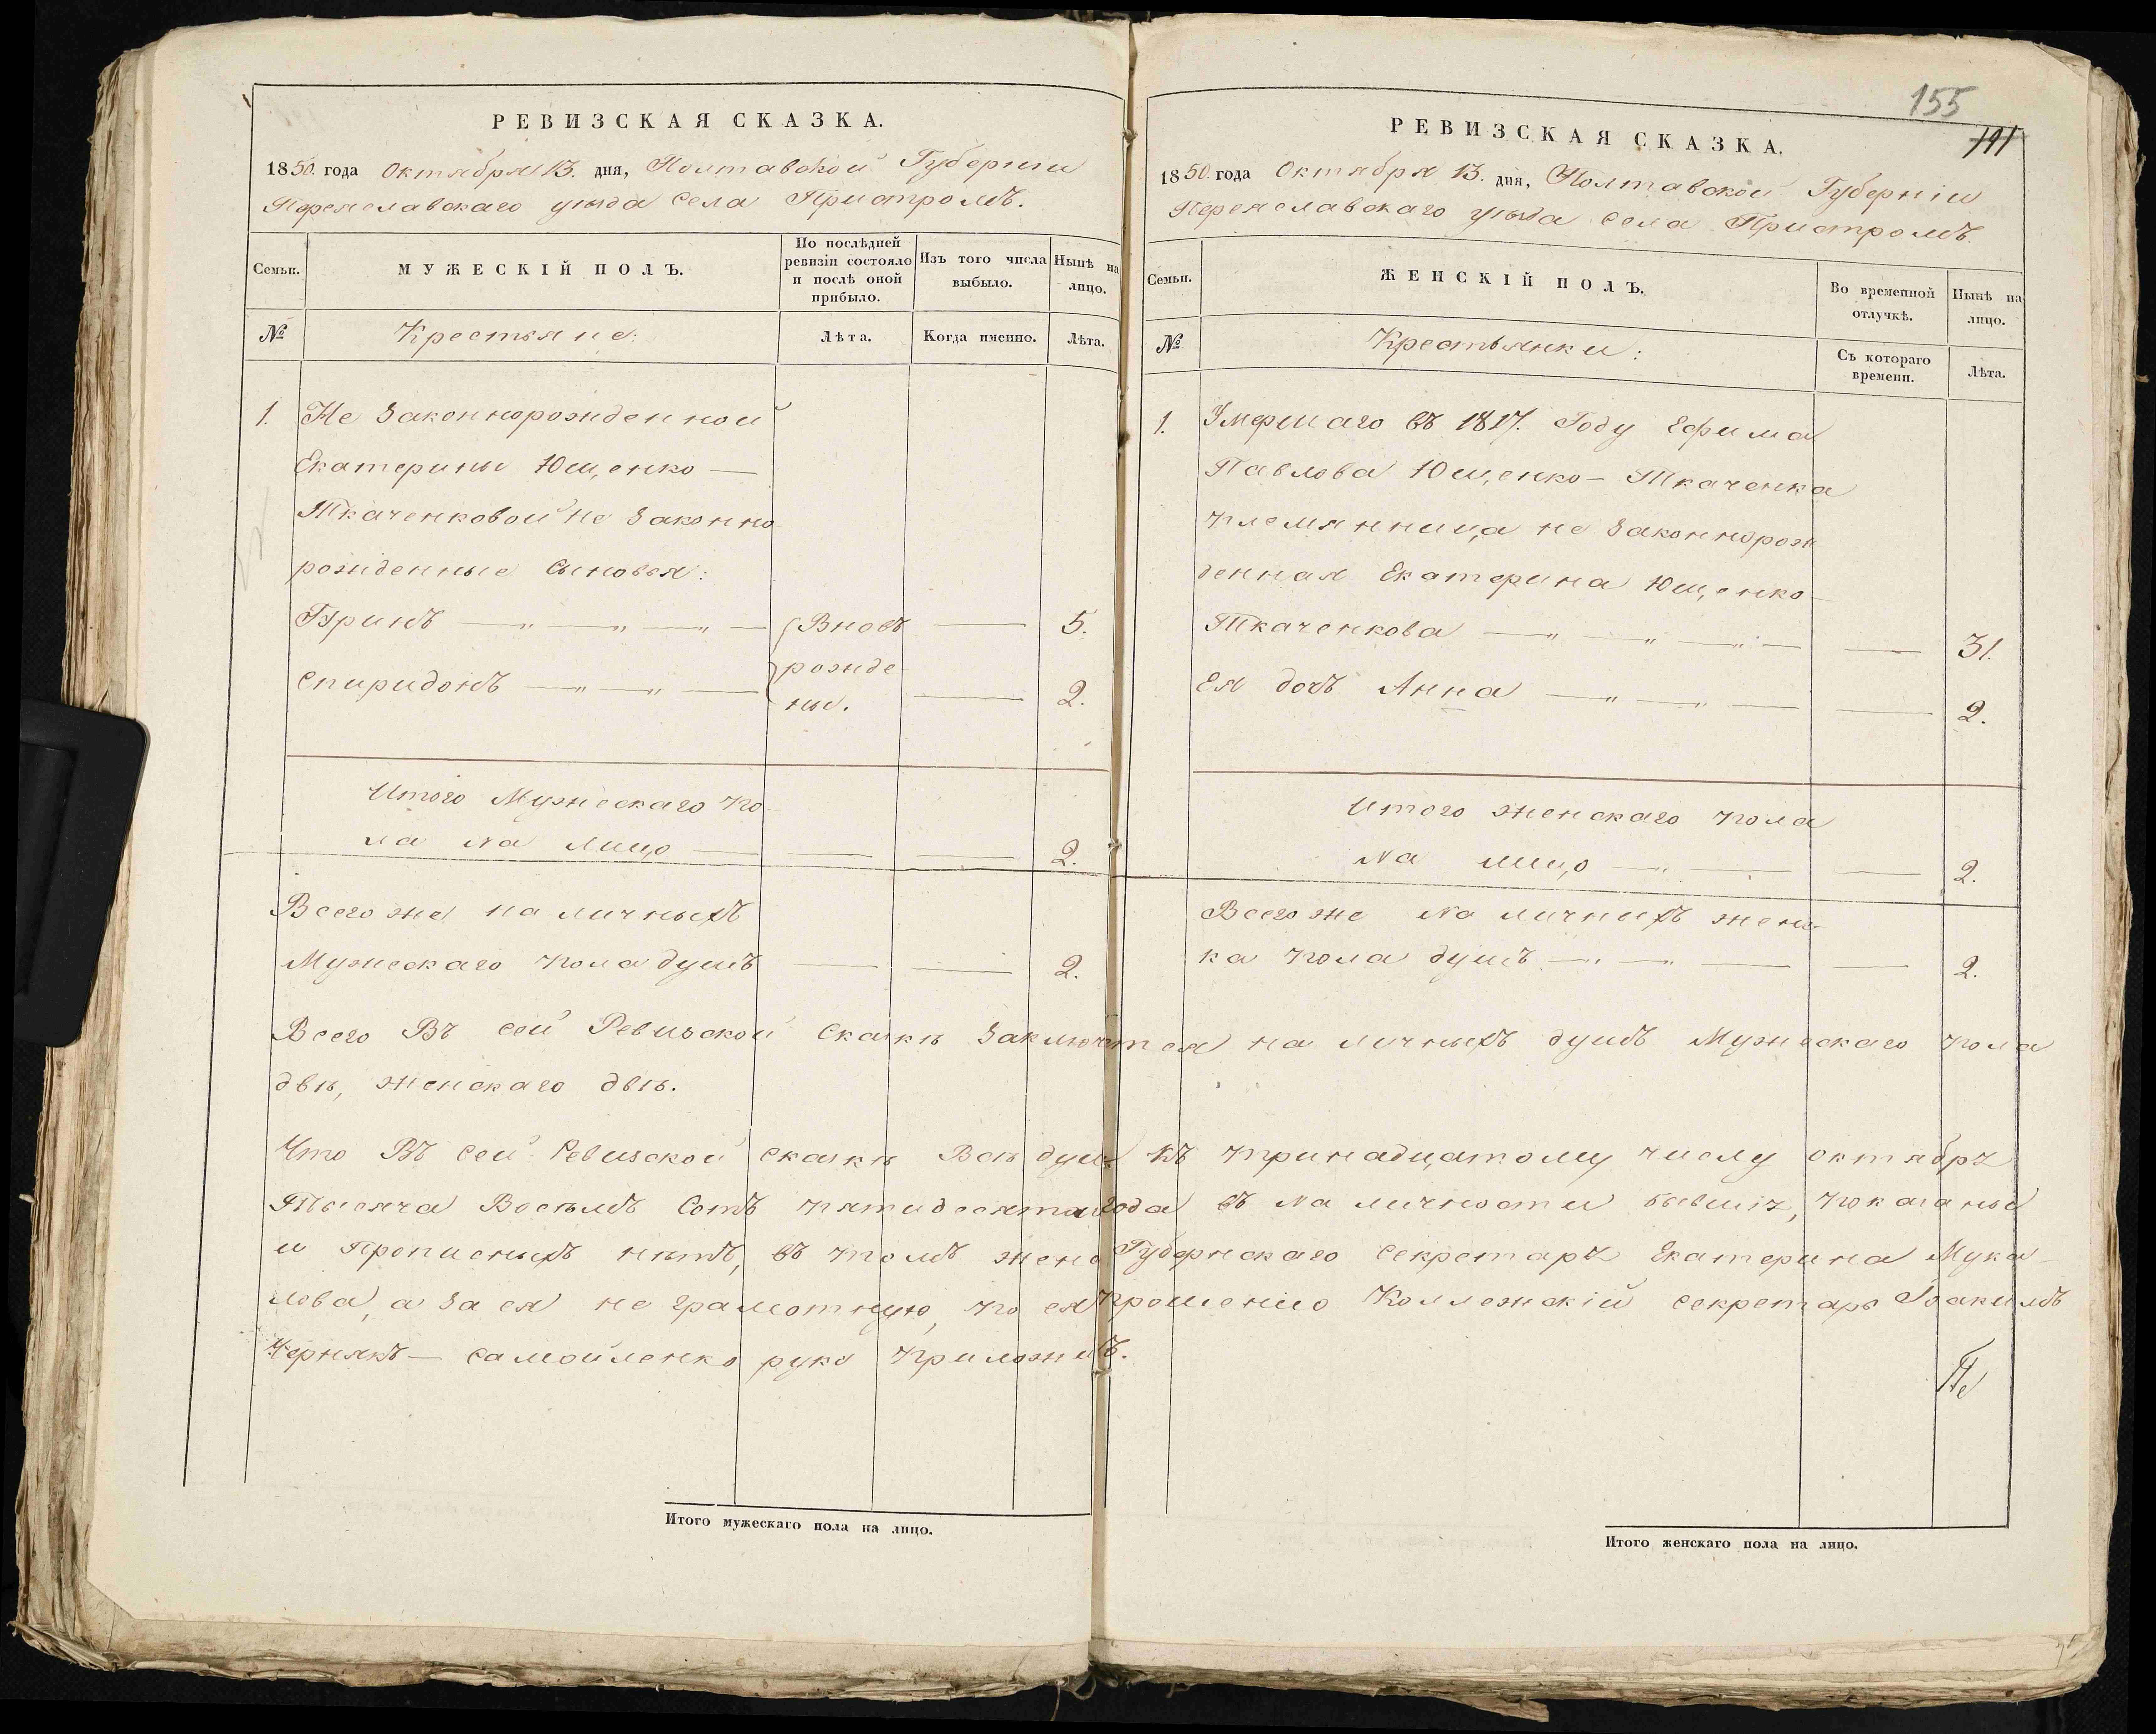 РЕВИЗСКАЯ СКАЗКА.
1850. года Октября 13. дня, Полтавской Губернии
Переяславскаго уѣзда Села Пристромъ.
Семьи.
МУЖЕСКІЙ ПОЛЪ.
По послѣдней
ревизіи состояло
и послѣ оной
прибыло.
Изъ того числа
выбыло.
Нынѣ на
лицо.
№
Крестьяне:
Лѣта.
Когда именно.
Лѣта.
1. Не Законнорожденной
Екатерины Ющенко —
Ткаченковой не Законно
рожденные Сыновья:
Гриць — „ — „ — „ — Вновь — 5.
рожде
Спиридонъ — „ — „ — ны. — 2.
Итого Мужескаго по
ла на лицо — — — 2.
Всего же на личныхъ
Мужескаго пола душъ — — 2.
155
191
РЕВИЗСКАЯ СКАЗКА.
1850. года Октября 13. дня, Полтавской Губерніи
Переяславскаго уѣзда села Пристромъ.
Семьи.
ЖЕНСКІЙ ПОЛЪ.
Во временной
отлучкѣ.
Нынѣ на
лицо.
№
Крестьянки:
Съ котораго
времени.
Лѣта.
1. Умершаго въ 1817. Году Ефима
Павлова Ющенко — Ткаченка
племянница не Законнорож
денная Екатерина Ющенко —
Ткаченкова — „ — „ — „ — — 31.
Ея дочь Анна — „ — „ — — 2.
Итого женскаго пола
на лицо — „ — — 2.
Всего же на личныхъ женс-
ка пола душъ — „ — „ — — 2.
Всего Въ сей Ревизской Сказкѣ Заключется на личныхъ душъ Мужескаго пола
двѣ, женскаго двѣ.
Что Въ сей Ревизской сказкѣ Всѣ души къ тринадцатому числу октября
Тысяча Восемь Сотъ пятидесятаго года въ на личности бывшія, показаны
и Прописныхъ нѣтъ, въ томъ жена Губернскаго секретаря Екатерина Мука-
лова, а За ея не грамотную, по ея прошенію Коллежскій секретарь Іоакимъ
Чернякъ — Самойленко руку приложилъ.
Пе
Итого мужескаго пола на лицо.
Итого женскаго пола на лицо.